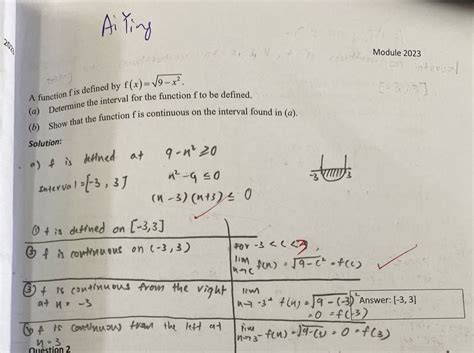 Ai Ying
Module 2023
A function f is defined by f(x)=√9−x².
(a) Determine the interval for the function f to be defined.
(b) Show that the function f is continuous on the interval found in (a).
Solution:
a) f is defined at 9-x² ≥0
Interval = [-3, 3] x²-9 ≤0
(x-3)(x+3) ≤ 0
-3 3
① f is defined on [-3,3]
② f is continuous on (-3, 3) For -3 < c < 3,
lim x→c f(x) = √9-c² = f(c)
③ f is continuous from the right at x = -3
lim x→-3⁺ f(x) = √9-(-3)² = 0 = f(-3)
Answer: [-3, 3]
④ f is continuous from the left at x = 3
lim x→3⁻ f(x) = √9-(3)² = 0 = f(3)
Question 2